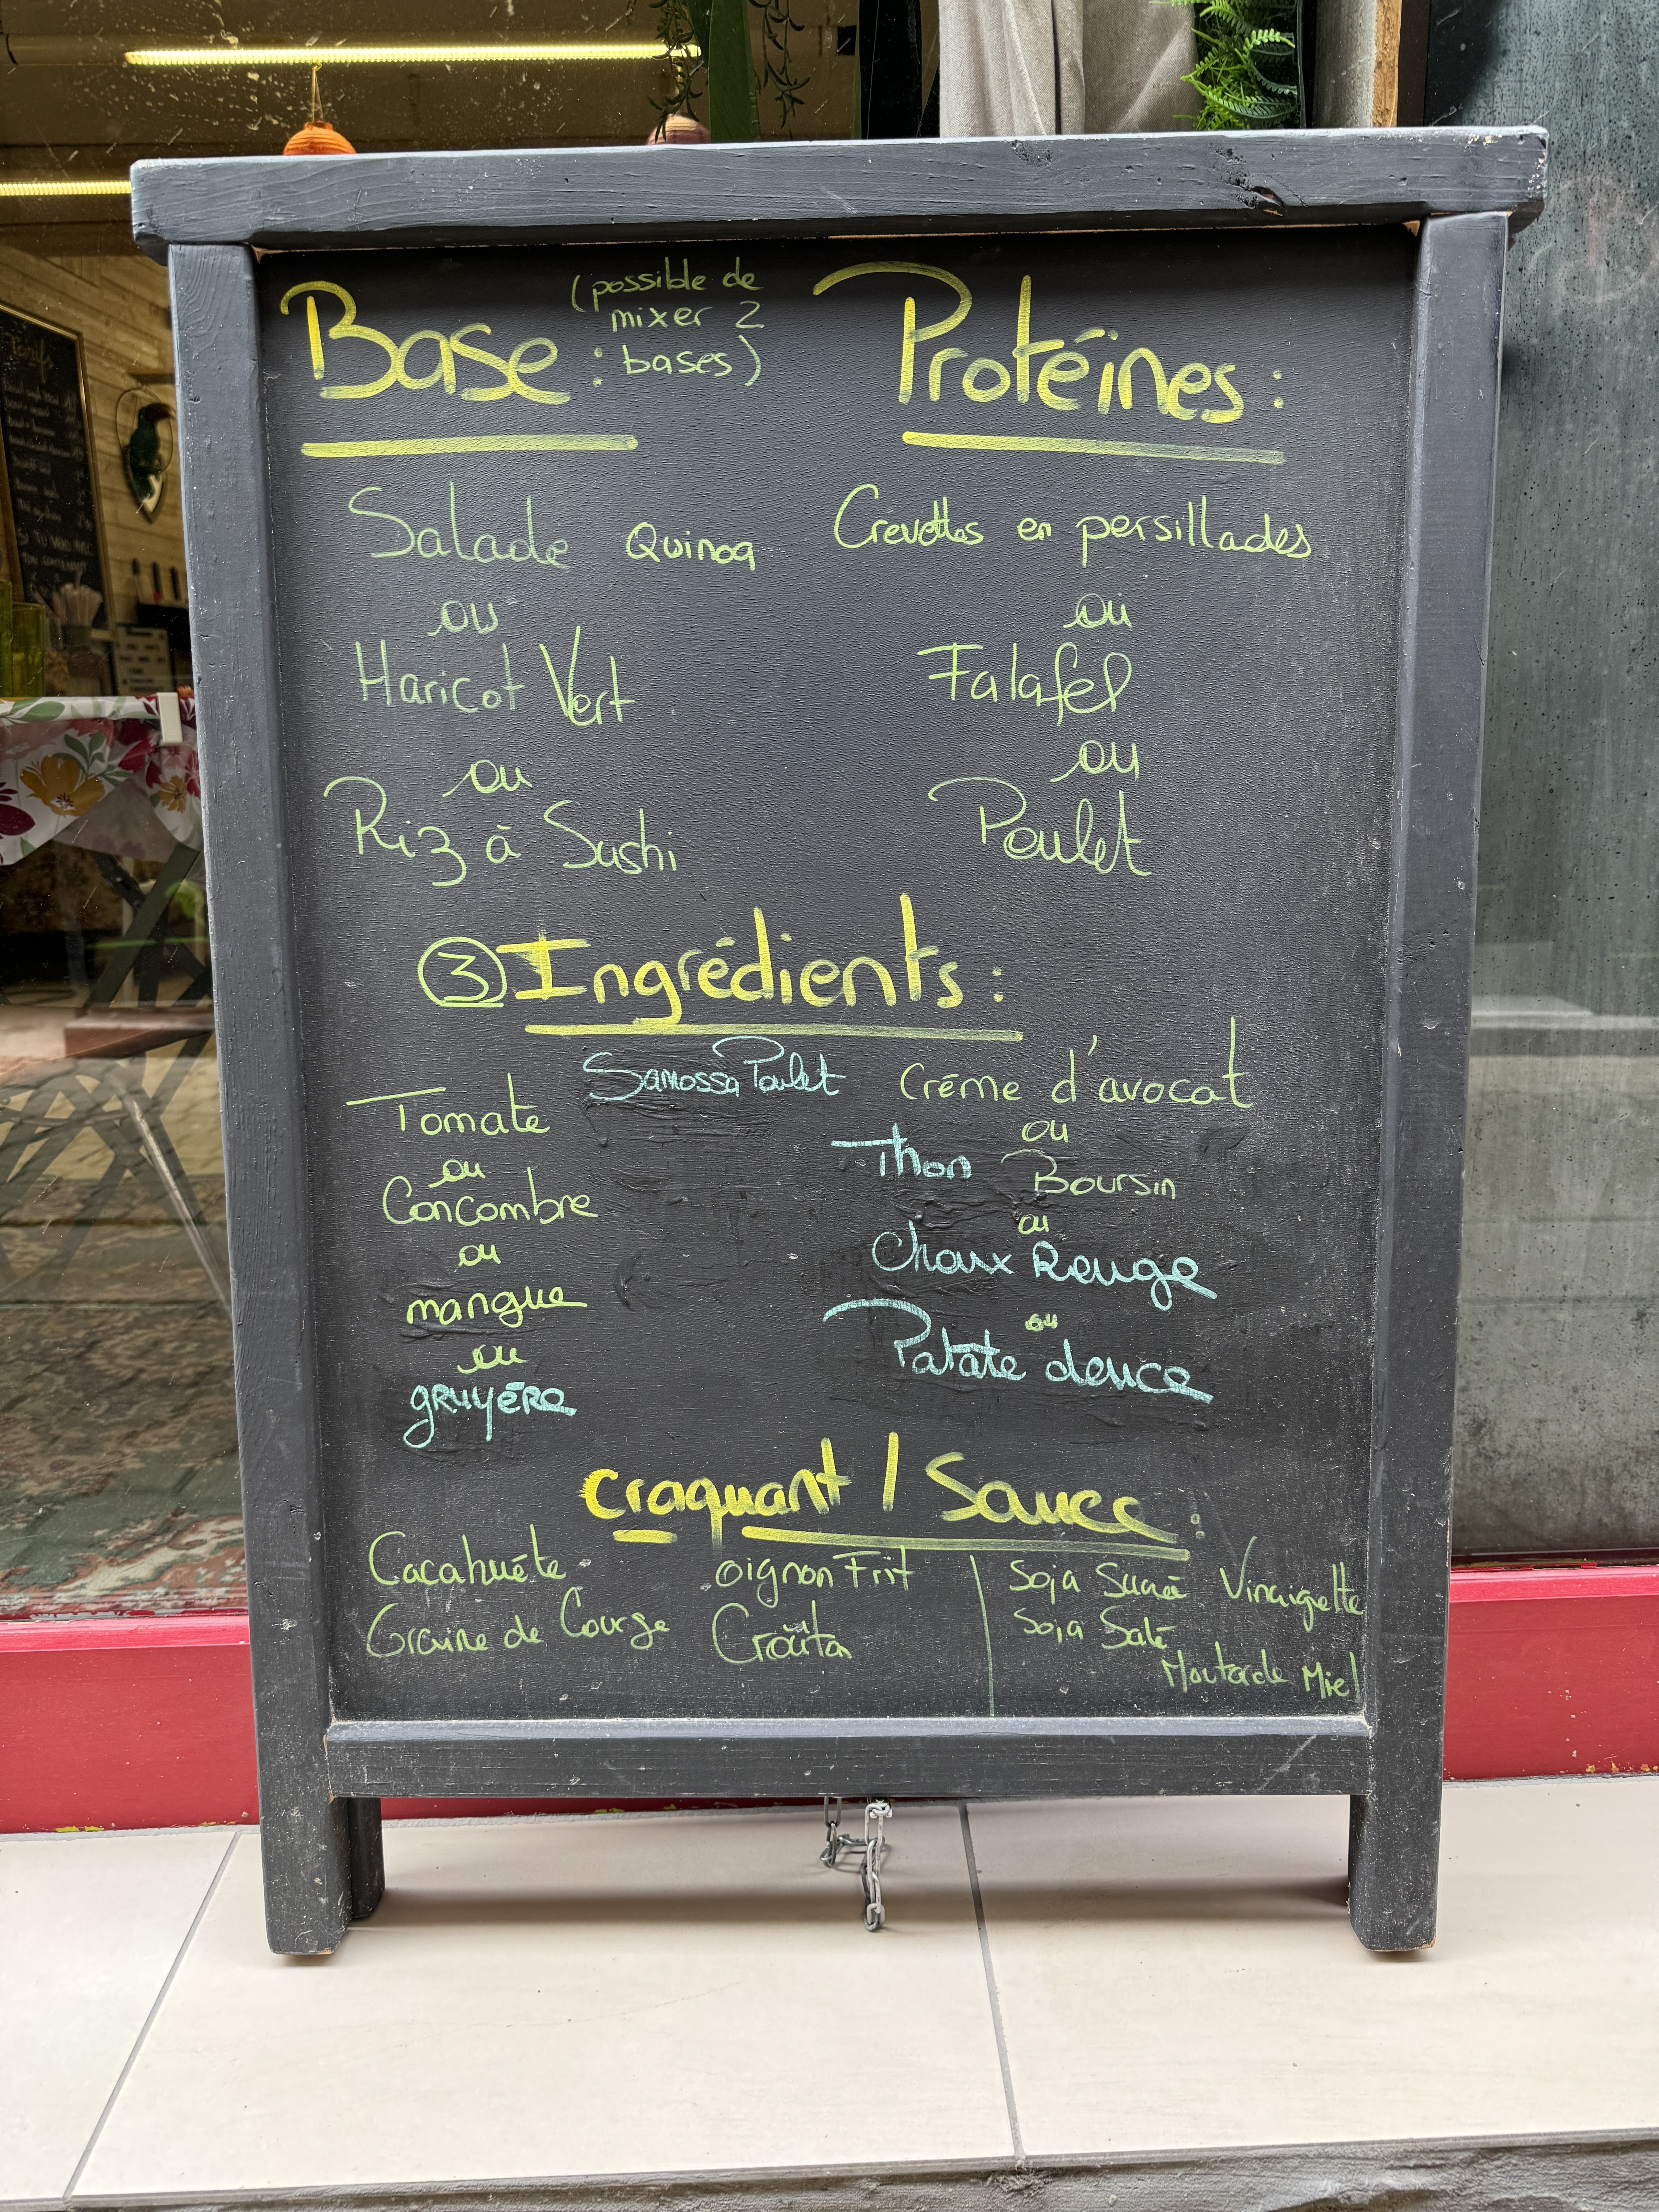 Base : (possible de
mixer 2
bases)
Salade Quinoa
ou
Haricot Vert
ou
Riz à Sushi
Protéines :
Crevettes en persillades
ou
Falafel
ou
Poulet
3 Ingrédients :
Samossa Poulet
Tomate
ou
Concombre
ou
mangue
ou
gruyére
Créme d'avocat
ou
Thon Boursin
ou
Choux Rouge
ou
Patate douce
craquant / Sauce :
Cacahuéte oignon Frit
Graine de Courge Croûton
Soja Sucré Vinaigrette
Soja Salé
Moutarde Miel